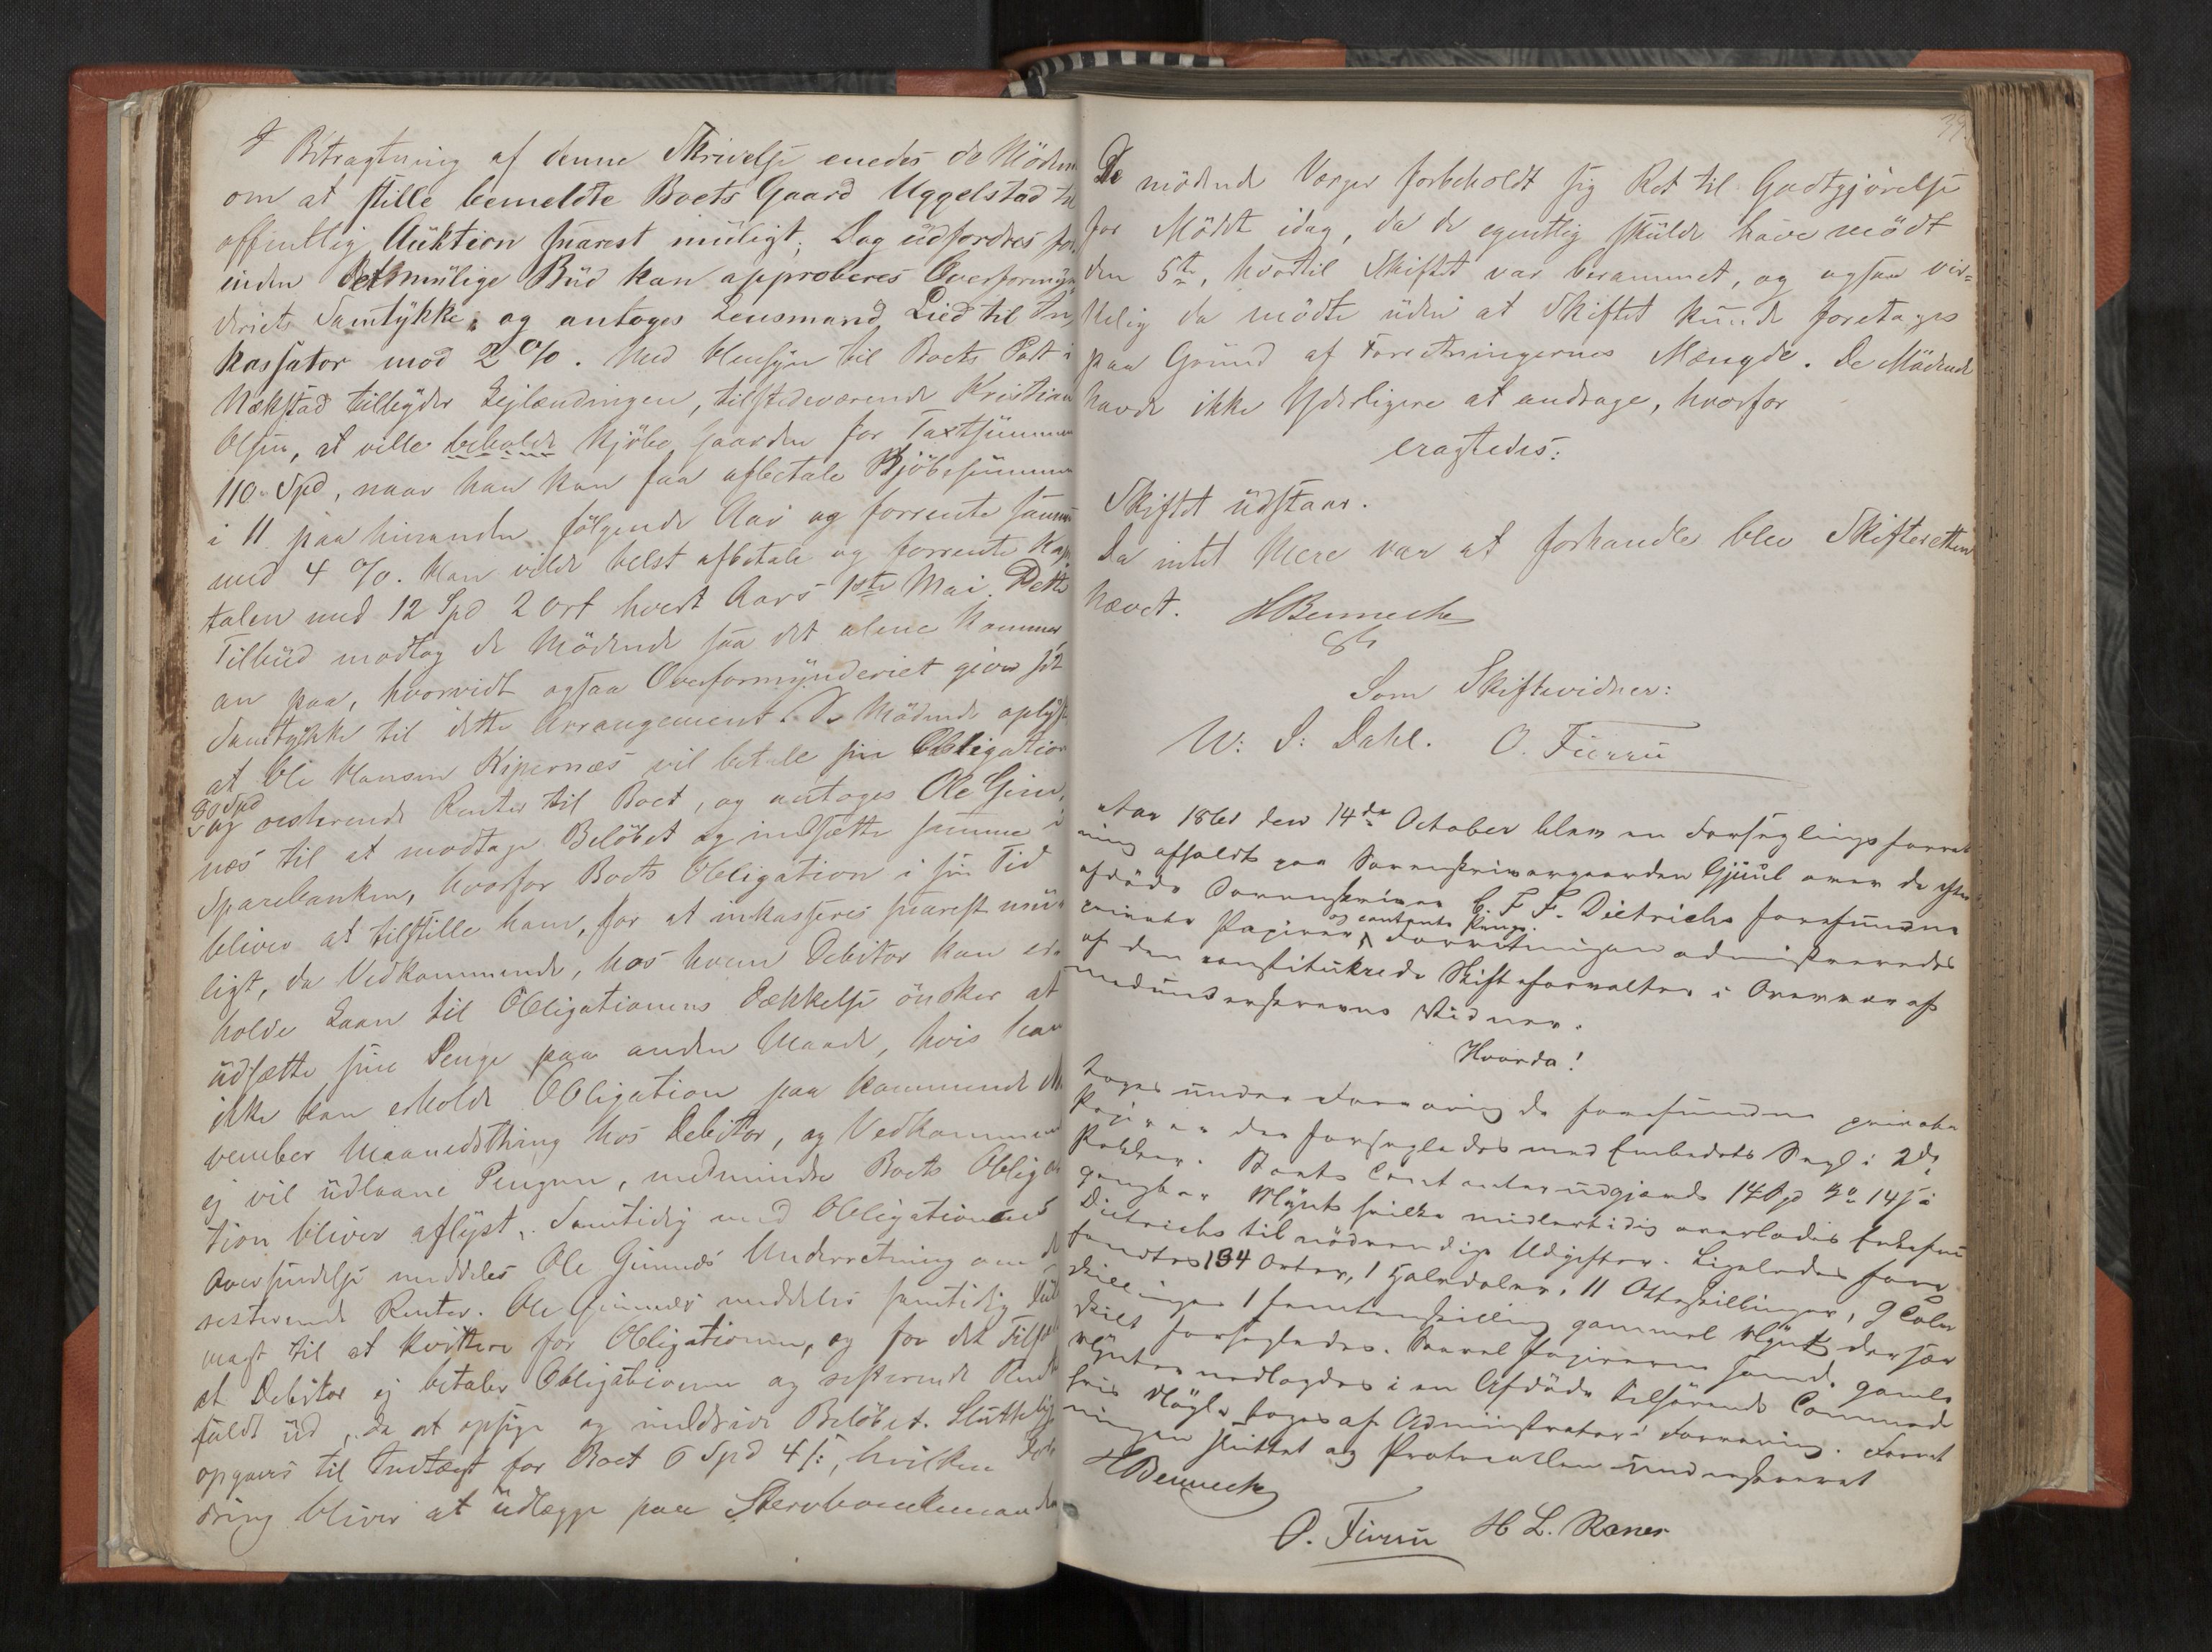 I Betragtning af denne Skrivelse enedes de Mödende
om at stille bemeldte Boets Gaard Uggelstad til
offentlig Auktion snarest muligt; Dog udfordres for-
inden det mulige Bud kan approberes Overformyn-
deriets Samtykke, og antoges Lensmand Lied til In-
kassator mod 2 %. Med Hensyn til Boets Part i
Nækstad tilbyder Lejlændingen, tilstedeværende Kristian
Olsen, at ville beholde kjöbe Gaarden for Taxtsummen
110 Spd, naar han kan faa afbetale Kjöbesummen
i 11 paa hinanden fölgende Aar og forrente samme
med 4 %. Han vilde helst afbetale og forrente Kapi-
talen med 12 Spd 2 ort hvert Aars 1ste Mai. Dette
Tilbud modtog de Mödende saa det alene kommer
an paa, hvorvidt ogsaa Overformynderiet giver sit
Samtykke til dette Arrangement. De Mödende oplyste
at Ole Hansen Kipernæs vil betale sin Obligation
80 Spd
og resterende Renter til Boet, og antoges Ole Gim-
næs til at modtage Belöbet og indsætte samme i
Sparebanken, hvorfor Boets Obligation i sin Tid
bliver at tilstille ham, for at inkasseres snarest mu-
ligt, da Vedkommende, hos hvem Debitor kan er-
holde Laan til Obligationens Dækkelse önsker at
udsætte sine Penge paa anden Maade, hvis han
ikke kan erholde Obligation paa kommende No-
vember Maanedsthing hos Debitor, og Vedkommende
ej vil udlaane Pengene, medmindre Boets Obliga-
tion bliver aflyst. Samtidig med Obligationens
Oversendelse meddeles Ole Gimnæs Underretning om de
resterende Renter. Ole Gimnæs meddeles samtidig Fuld-
magt til at kvittere for Obligationen, og for det Tilfælde
at Debitor ej betaler Obligationen og resterende Renter
fuldt ud, da at opsige og inddrive Belöbet. Sluttelig
opgaves til Indtægt for Boet 6 Spd 4 ß, hvilken Ford-
dring bliver at udlægge paa Stervboenkemanden
De mödende Verger forbeholdt sig Ret til Godtgjörelse
for Mödet idag, da de egentlig skulde have mödt
den 5te, hvortil Skiftet var berammet, og ogsaa vir-
kelig da mödte uden at Skiftet kunde foretages
paa Grund af Forretningernes Mængde. De Mödende
havde ikke Yderligere at andrage, hvorfor
eragtedes:
Skiftet udstaar.
Da intet Mere var at forhandle blev Skifteretten
hævet. HBenneche
Som Skiftevidner:
W: I: Dahl. O. Fierru
Aar 186 den 14de October blev en Forseglingsforret-
ning afholdt paa Sorenskrivergaarden Gjuul over de efter
afdöde Sorenskriver C. F. F. Dietrichs forefundne
og contante Penge.
private Papirer Forretningen administreredes
af den constituerede Skifteforvalter i Overvær af
medunderskrevne Vidner.
Hvorda!
toges under Forvaring de forefundne private
Papirer der forsegledes med Embedets Segl i 2de
Pakker. Boets Contanter udgjorde 14 Spd 14 ß i
gangbar Mynt hvilke midlertidig overlodes Enkefru
Dietrichs til nödvendige Udgifter. Ligeledes fore-
fandtes 134 Orter, 1 Halvdaler, 11 Otteskillinger, 9
skillinger 1 skilling gammel Mynt der sær-
skilt forsegledes. Saavel Papirerne samt gamle
Mynter nedlagdes i en Afdöde tilhörende Commode
hvis Nögle toges af Administrator i Forvaring. Forret-
ningen sluttet og Protocollen underskrevet
HBenneche
O. Fierru H L. Ræner